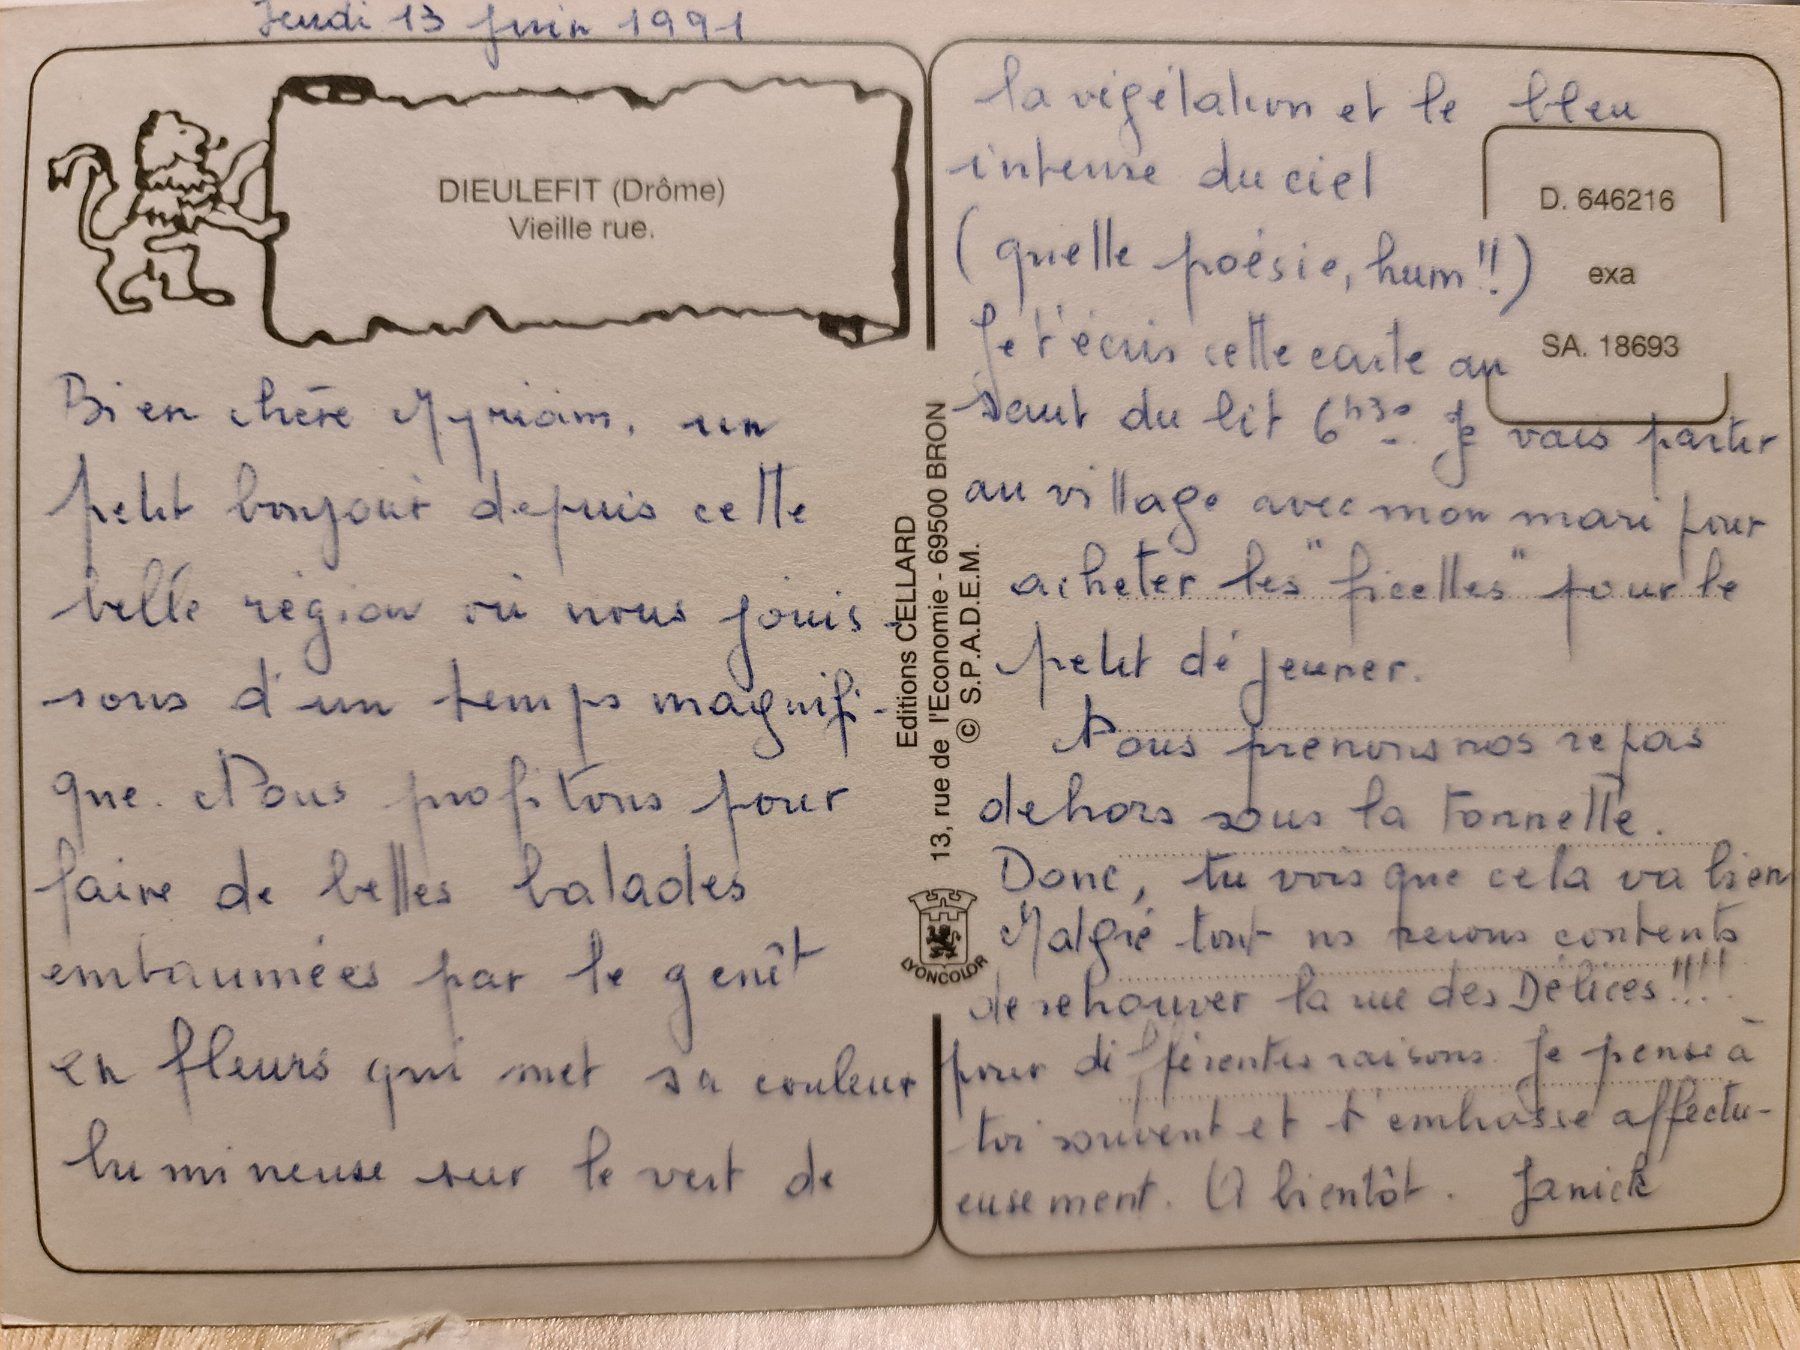 Jeudi 13 juin 1991
DIEULEFIT (Drôme)
Vieille rue.
Bien chère Myriam, un
petit bonjour depuis cette
belle région où nous jouis-
sons d'un temps magnifi-
que. Nous profitons pour
faire de belles balades
embaumées par le genêt
en fleurs qui met sa couleur
lumineuse sur le vert de
Editions CELLARD
13, rue de l'Economie - 69500 BRON
© S.P.A.D.E.M.
LYONCOLOR
D. 646216
exa
SA. 18693
la végétation et le bleu
intense du ciel
(quelle poésie, hum!!)
Je t'écris cette carte au
saut du lit 6h30. Je vais partir
au village avec mon mari pour
acheter les "ficelles" pour le
petit déjeuner.
Nous prenons nos repas
dehors sous la tonnelle.
Donc, tu vois que cela va bien
Malgré tout ns serons contents
de retrouver la rue des Délices!!!!
pour différentes raisons. Je pense à
toi souvent et t'embrasse affectu-
eusement. A bientôt. Janick